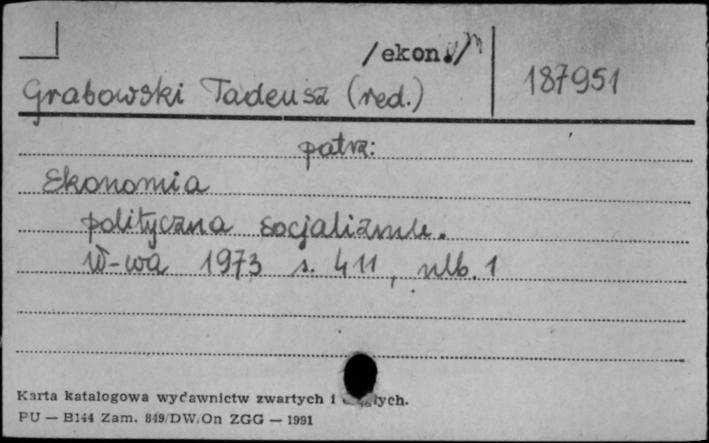 /ekon./
187951
Grabowski Tadeusz (red.)
patrz:
Ekonomia
polityczna socjalizmu.
W-wa 1973 s. 411, nlb. 1
Karta katalogowa wydawnictw zwartych i
PU — B144 Zam. 849/DW/On ZGG — 1991